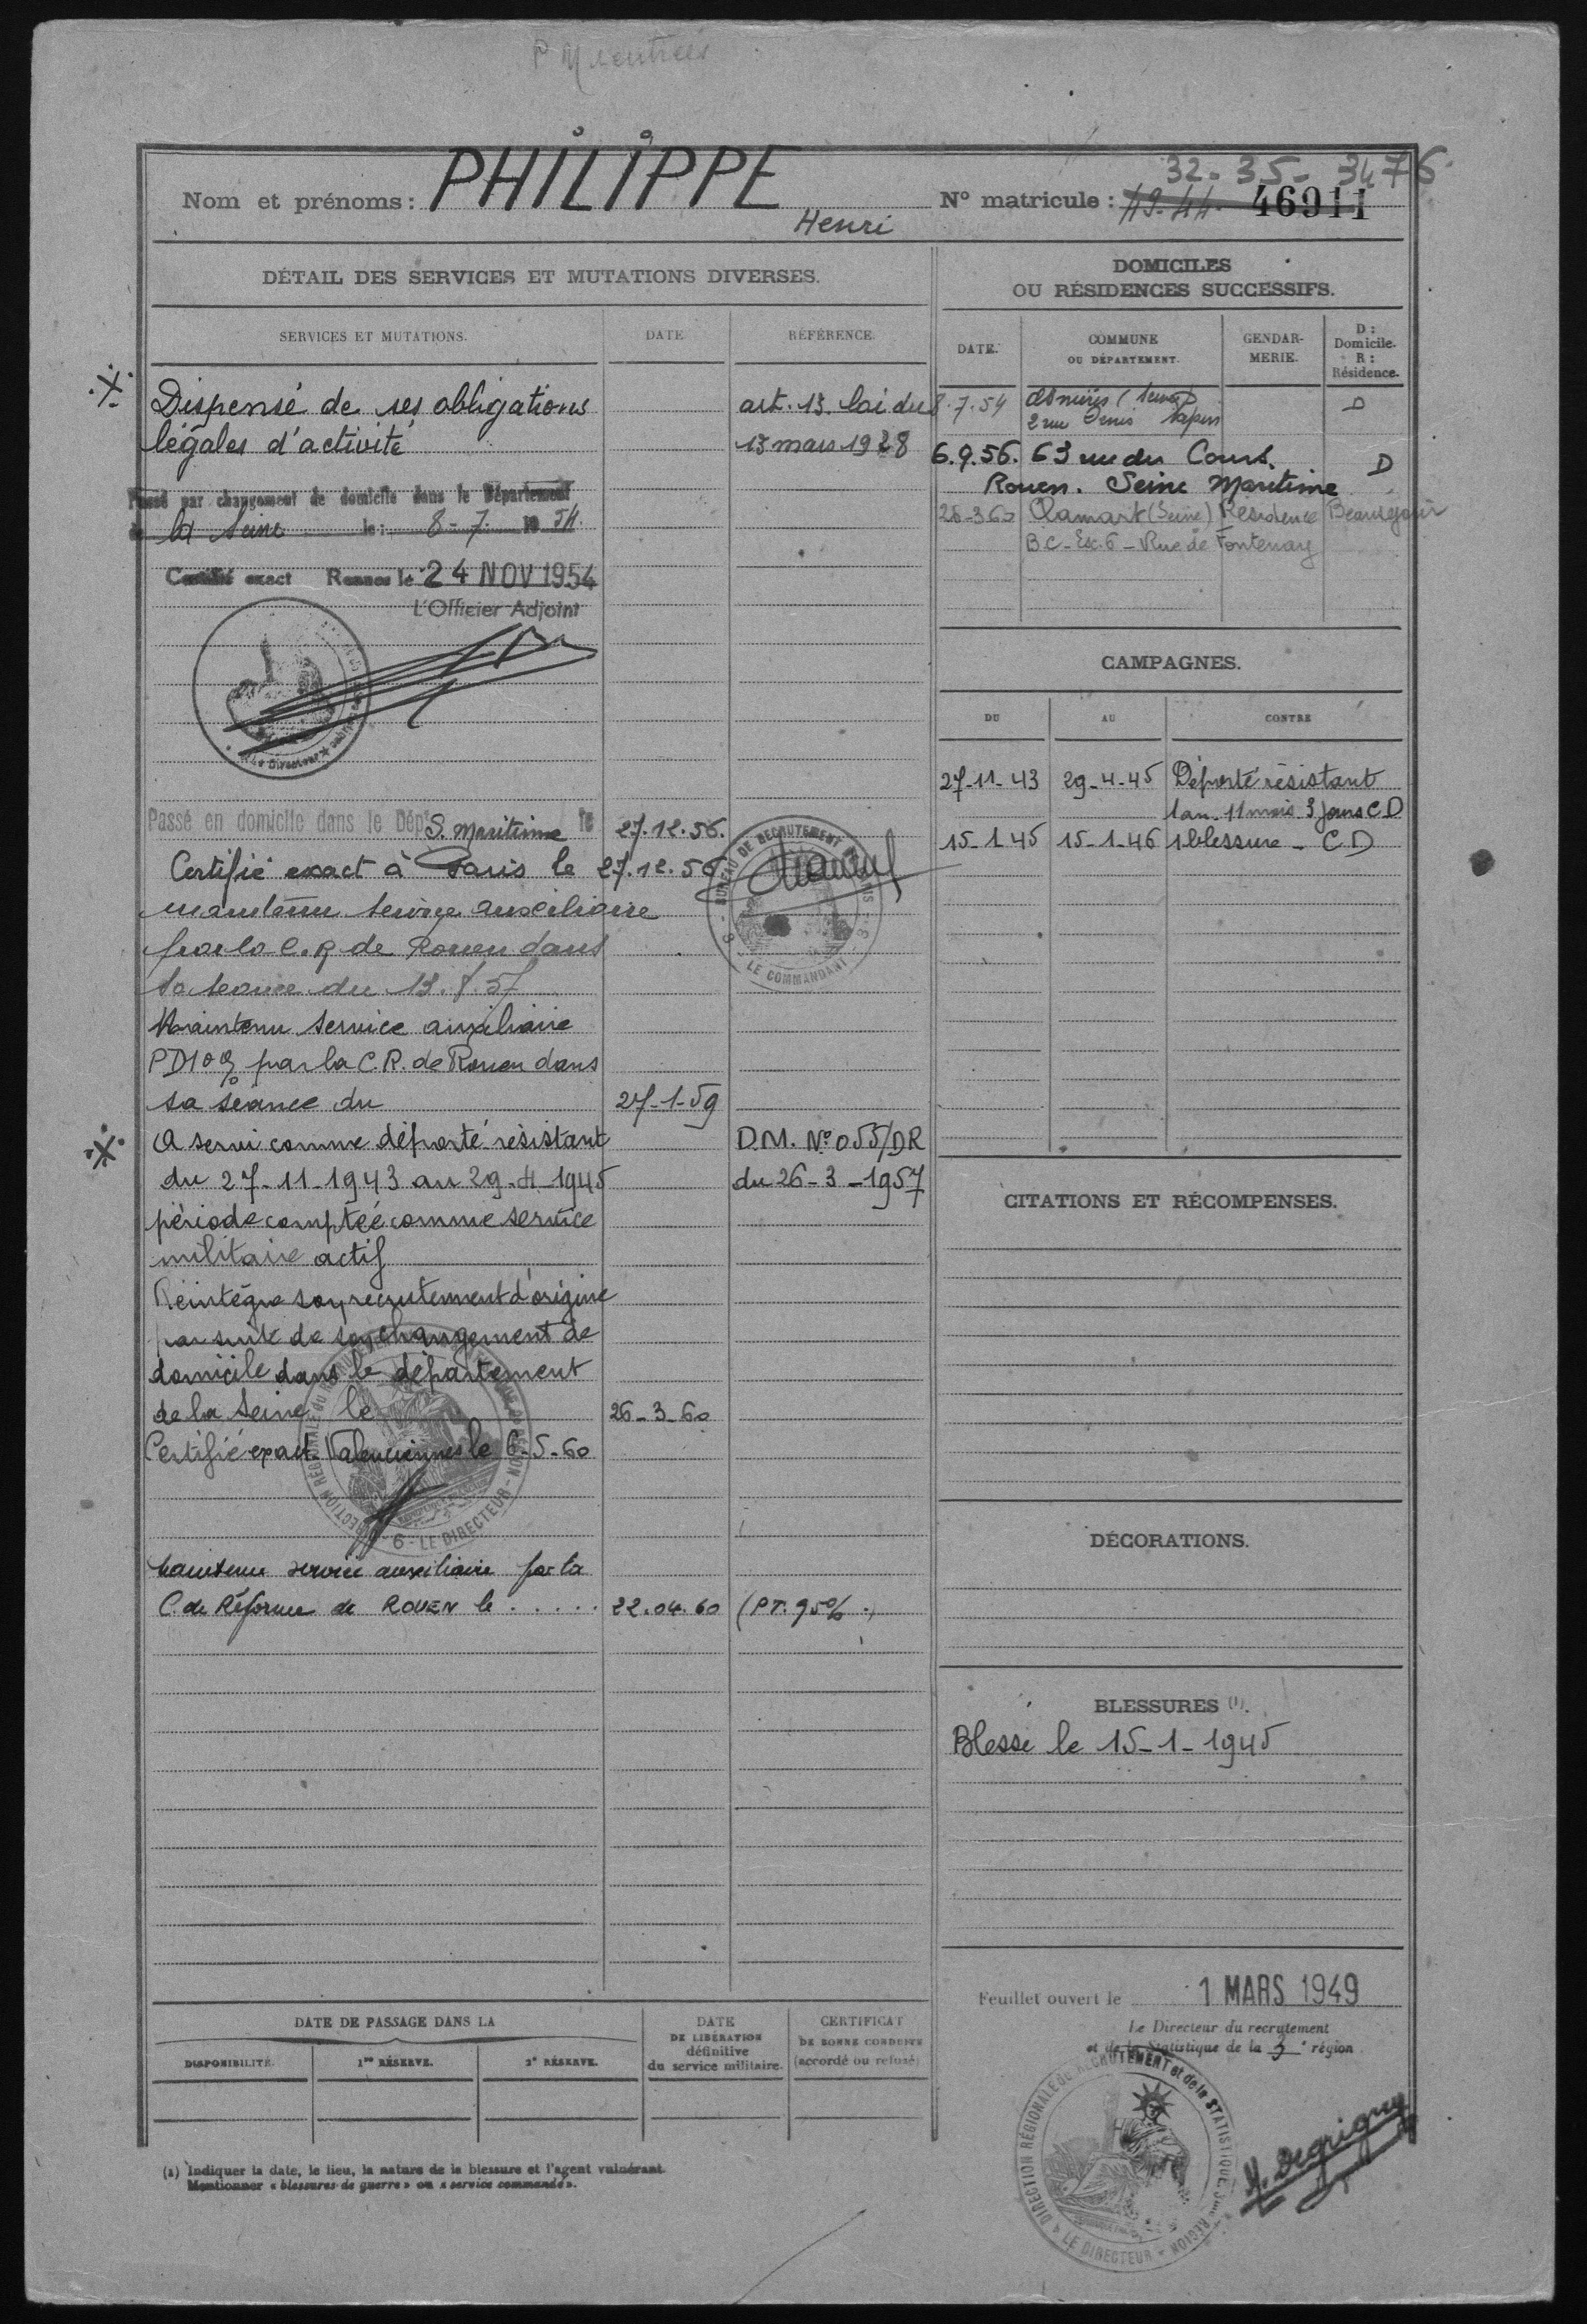 P M rentrées
32-35-3476
Nom et prénoms : PHILIPPE
Henri
N° matricule : 49-44- 46911
DÉTAIL DES SERVICES ET MUTATIONS DIVERSES.
SERVICES ET MUTATIONS.
DATE
RÉFÉRENCE.
Dispensé de ses obligations
art. 13. loi du
légales d'activité
13 mars 1928
Passé par changement de domicile dans le Département
de la Seine le : 8-7- 19 54.
Certifié exact Rennes le 24 NOV 1954
L'Officier Adjoint
Le Directeur
Passé en domicile dans le Dépt S. Maritime le 27.12.56.
Certifié exact à Paris le 27.12.56
BUREAU DE RECRUTEMENT
LE COMMANDANT
maintenu service auxiliaire
par la C.R de Rouen dans
sa séance du 13.8.57
Maintenu service auxiliaire
PD10% par la C.R. de Rouen dans
sa séance du 27-1-59
A servi comme déporté résistant
D.M. N° 055/DR
du 27-11-1943 au 29-4-1945
du 26-3-1957
période comptée comme service
militaire actif
Réintègre son recrutement d'origine
par suite de son changement de
domicile dans le département
de la Seine le 26-3-60
Certifié exact Valenciennes le 6-5-60
6 - LE DIRECTEUR -
maintenu service auxiliaire par la
C. de Réforme de ROUEN le ..... 22.04.60 (PT. 95%.)
DOMICILES
OU RÉSIDENCES SUCCESSIFS.
DATE.
COMMUNE
OU DÉPARTEMENT.
GENDAR-
MERIE.
D :
Domicile.
R :
Résidence.
8.7.54 Asnières (Seine) D
2 rue Denis Papin
6.9.56. 63 rue du Cours. D
Rouen. Seine Maritime
26-3 60 Clamart (Seine) Résidence Beauséjour
B.C - Esc. 6 - Rue de Fontenay
CAMPAGNES.
DU
AU
CONTRE
27-11-43 29-4-45 Déporté résistant
1 an. 11 mois 3 jours C D
15-1-45 15-1-46 1 blessure - C D
CITATIONS ET RÉCOMPENSES.
DÉCORATIONS.
BLESSURES (1).
Blessé le 15-1-1945
Feuillet ouvert le 1 MARS 1949
Le Directeur du recrutement
et de la Statistique de la 3e région
DIRECTION RÉGIONALE DU RECRUTEMENT et de la STATISTIQUE 3me RÉGION
LE DIRECTEUR
DATE DE PASSAGE DANS LA
DISPONIBILITÉ.
1re RÉSERVE.
2e RÉSERVE.
DATE
DE LIBÉRATION
définitive
du service militaire.
CERTIFICAT
DE BONNE CONDUITE
(accordé ou refusé)
(1) Indiquer la date, le lieu, la nature de la blessure et l'agent vulnérant.
Mentionner « blessures de guerre » ou « service commandé ».